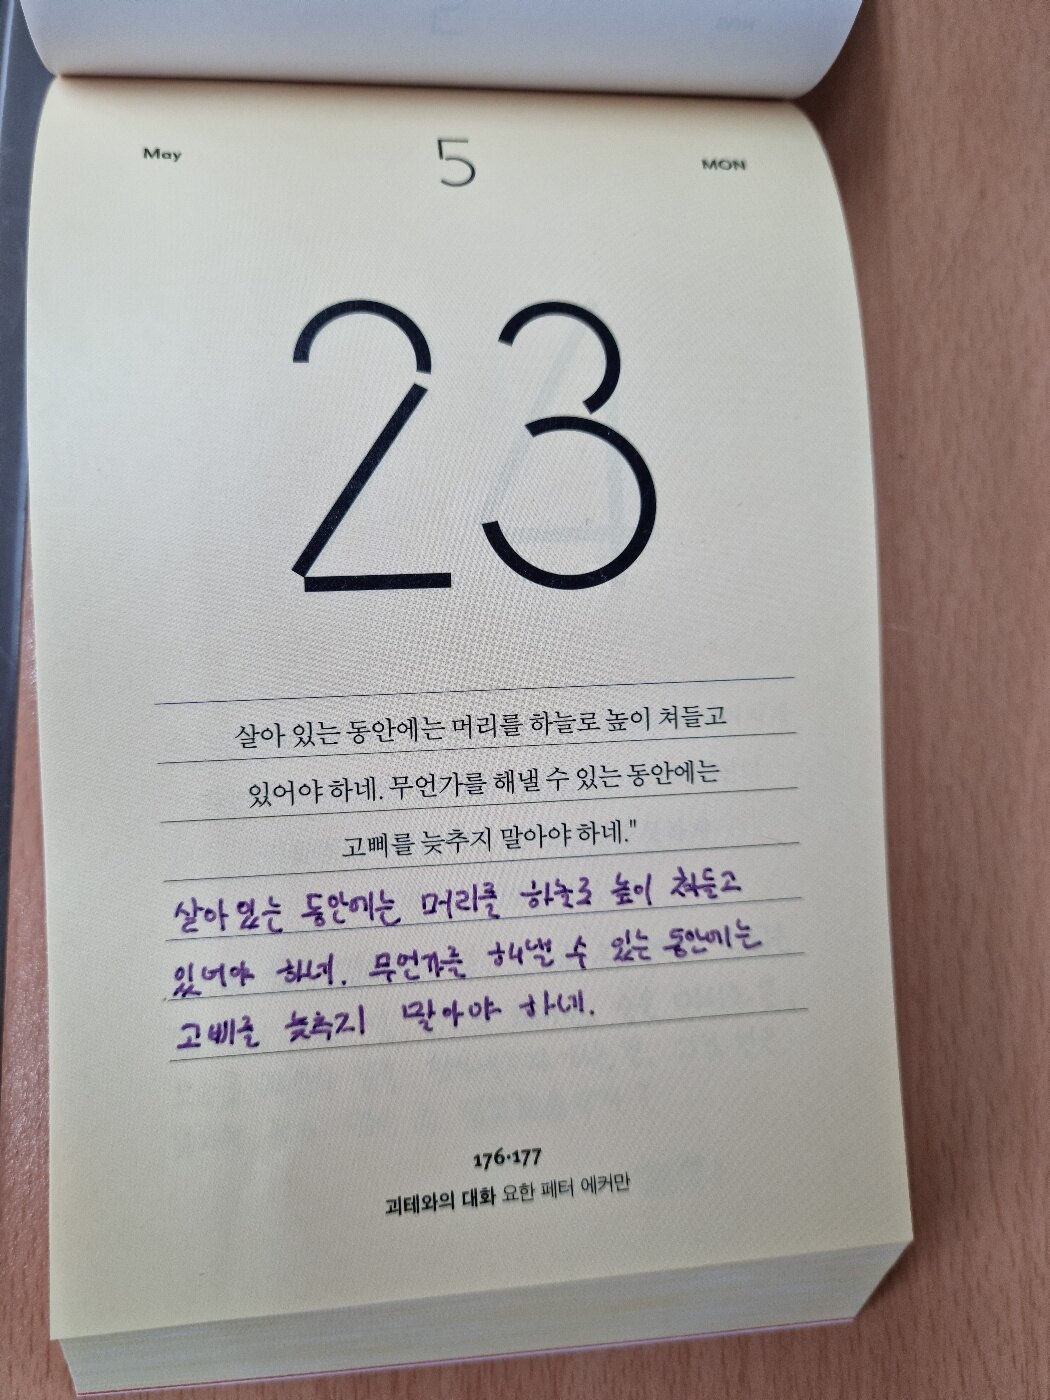 May 5 MON
23
살아 있는 동안에는 머리를 하늘로 높이 쳐들고
있어야 하네. 무언가를 해낼 수 있는 동안에는
고삐를 늦추지 말아야 하네."
살아 있는 동안에는 머리를 하늘로 높이 쳐들고
있어야 하네. 무언가를 해낼 수 있는 동안에는
고삐를 늦추지 말아야 하네.
176·177
괴테와의 대화 요한 페터 에커만